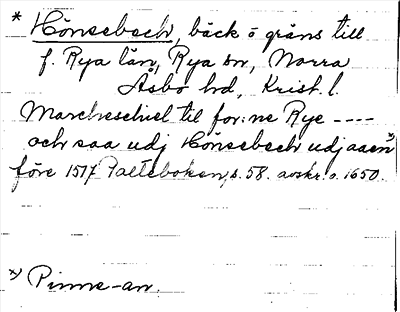 * Hönsebech, bäck ö gräns till
f. Rya län, Rya sn, Norra
Åsbo hd, Krist. l.
Marcheschiel til for:ne Rye ----
och saa udj Hönsebech udj aaen x)
före 1517 Palteboken, s. 58. avskr. o. 1650.
x) Pinne-ån.